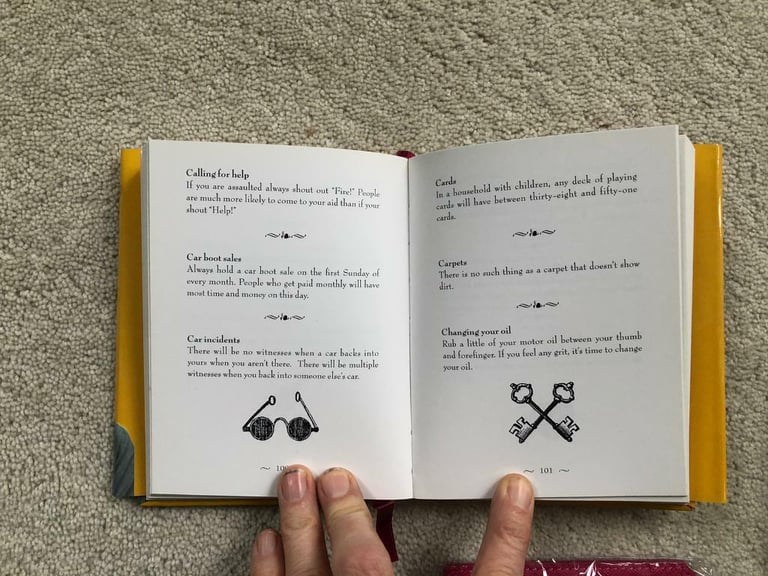 Calling for help
If you are assaulted always shout out "Fire!" People
are much more likely to come to your aid than if your
shout "Help!"
Car boot sales
Always hold a car boot sale on the first Sunday of
every month. People who get paid monthly will have
most time and money on this day.
Car incidents
There will be no witnesses when a car backs into
yours when you aren't there. There will be multiple
witnesses when you back into someone else's car.
Cards
In a household with children, any deck of playing
cards will have between thirty-eight and fifty-one
cards.
Carpets
There is no such thing as a carpet that doesn't show
dirt.
Changing your oil
Rub a little of your motor oil between your thumb
and forefinger. If you feel any grit, it's time to change
your oil.
~ 101 ~